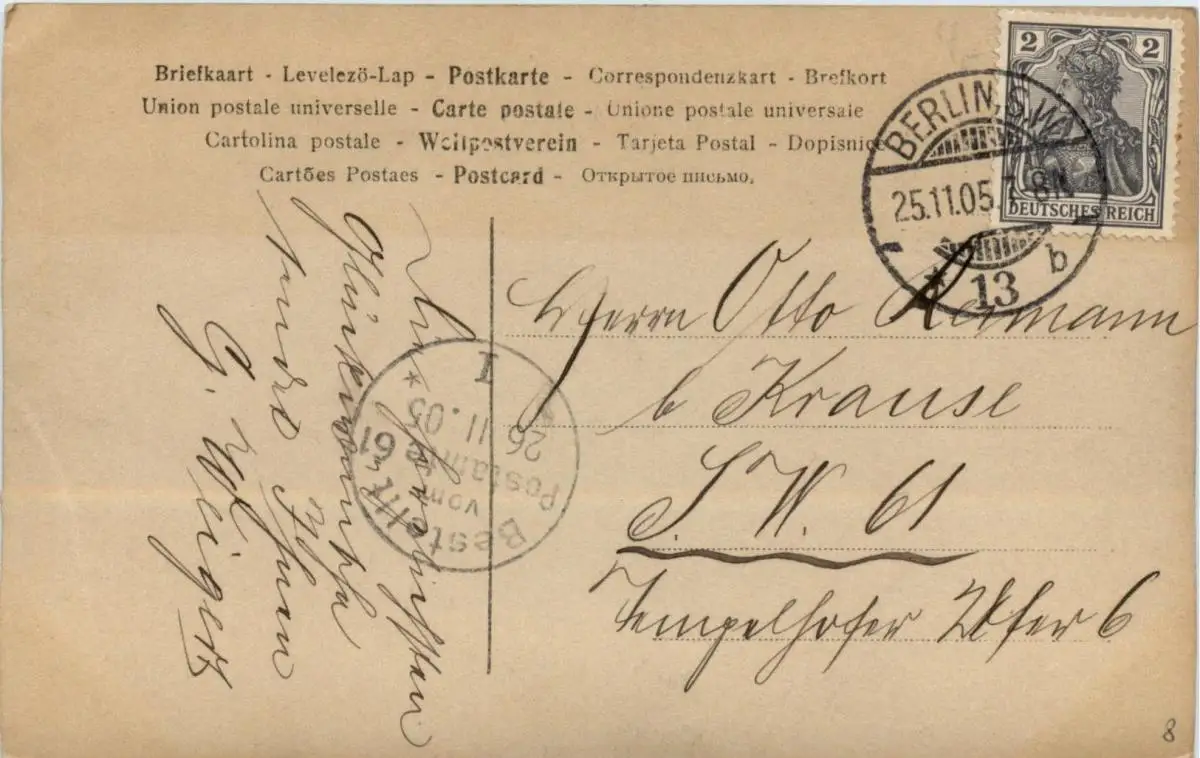 Briefkaart - Levelezö-Lap - Postkarte - Correspondenzkart - Brefkort
Union postale universelle - Carte postale - Unione postale universale
Cartolina postale - Weltpostverein - Tarjeta Postal - Dopisnice
Cartões Postaes - Postcard - Открытое письмо.
2 2
DEUTSCHES REICH
BERLIN, S.W.
25.11.05. 7-8N
* 13 b
Die herzlichsten
Glückwünsche
sendet Ihnen
G. Weigert
Bestellt
vom
Postamte 61
26 11.05
I
Herrn Otto Reimann
b Krause
S. W. 61
Tempelhofer Ufer 6
8